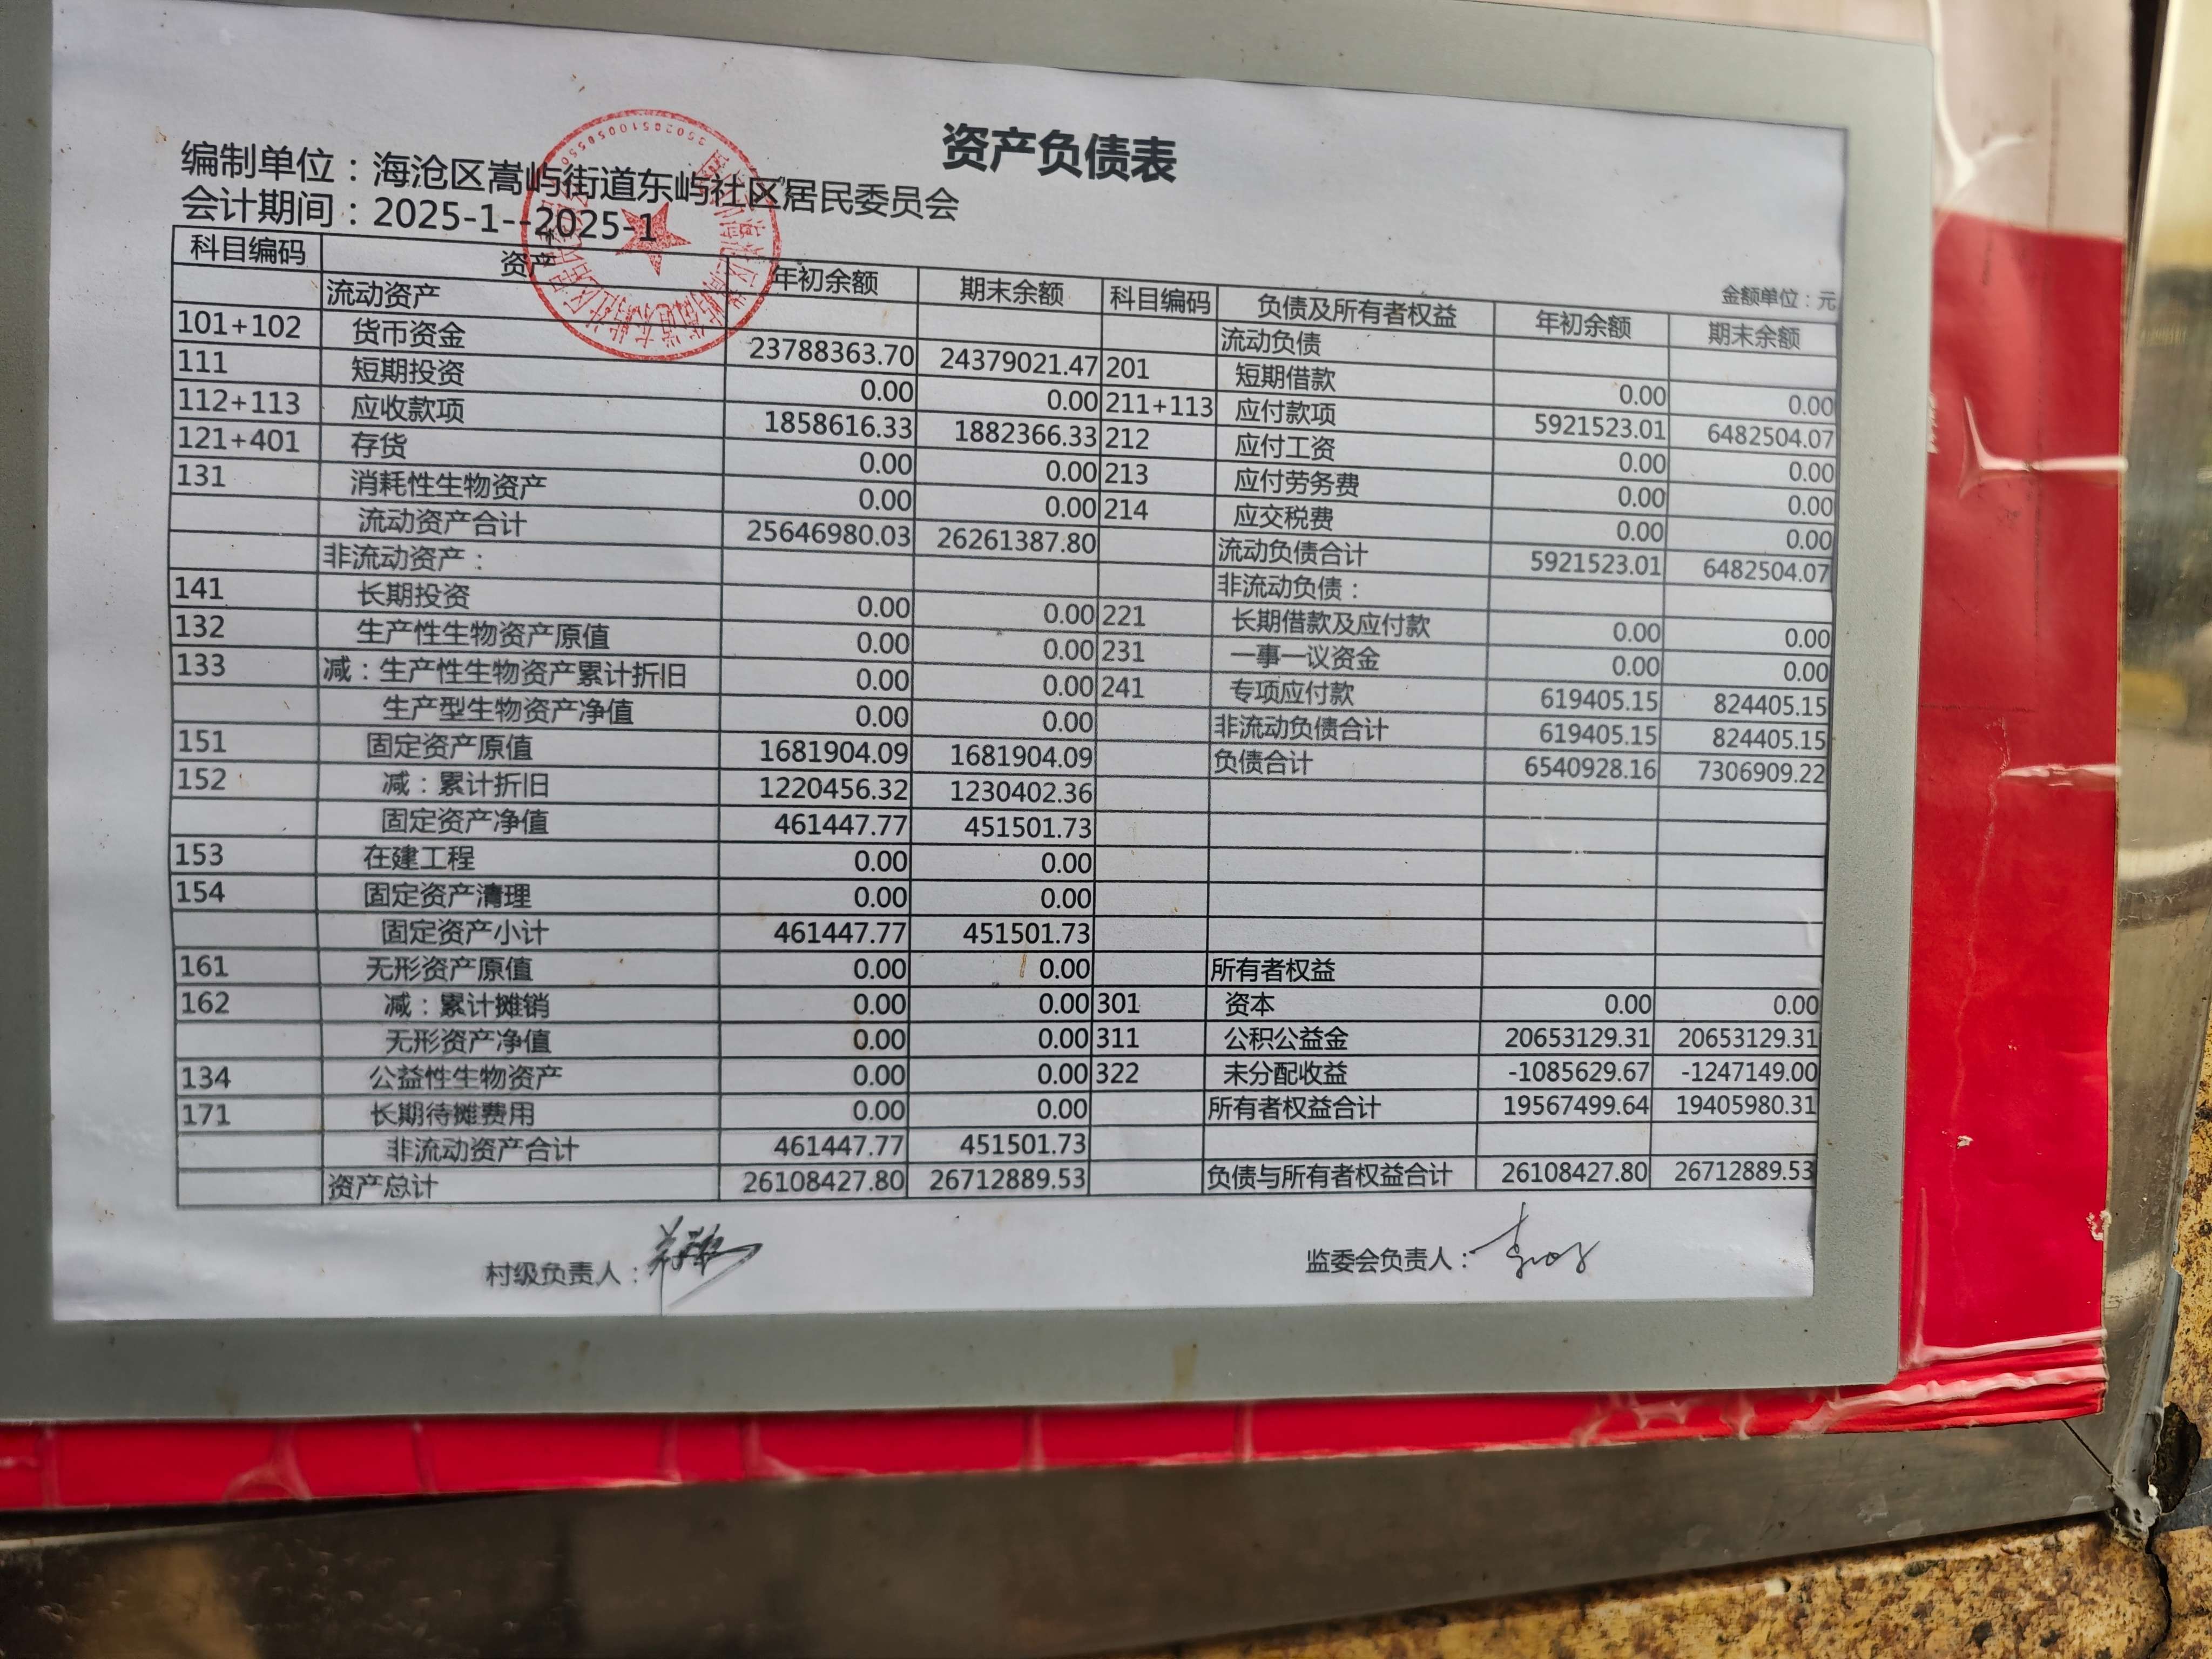 资产负债表
编制单位：海沧区嵩屿街道东屿社区居民委员会
会计期间：2025-1--2025-1
金额单位：元
科目编码 资产 年初余额 期末余额 科目编码 负债及所有者权益 年初余额 期末余额
流动资产 流动负债
101+102 货币资金 23788363.70 24379021.47 201 短期借款 0.00 0.00
111 短期投资 0.00 0.00 211+113 应付款项 5921523.01 6482504.07
112+113 应收款项 1858616.33 1882366.33 212 应付工资 0.00 0.00
121+401 存货 0.00 0.00 213 应付劳务费 0.00 0.00
131 消耗性生物资产 0.00 0.00 214 应交税费 0.00 0.00
流动资产合计 25646980.03 26261387.80 流动负债合计 5921523.01 6482504.07
非流动资产： 非流动负债：
141 长期投资 0.00 0.00 221 长期借款及应付款 0.00 0.00
132 生产性生物资产原值 0.00 0.00 231 一事一议资金 0.00 0.00
133 减：生产性生物资产累计折旧 0.00 0.00 241 专项应付款 619405.15 824405.15
生产型生物资产净值 0.00 0.00 非流动负债合计 619405.15 824405.15
151 固定资产原值 1681904.09 1681904.09 负债合计 6540928.16 7306909.22
152 减：累计折旧 1220456.32 1230402.36
固定资产净值 461447.77 451501.73
153 在建工程 0.00 0.00
154 固定资产清理 0.00 0.00
固定资产小计 461447.77 451501.73
161 无形资产原值 0.00 0.00 所有者权益
162 减：累计摊销 0.00 0.00 301 资本 0.00 0.00
无形资产净值 0.00 0.00 311 公积公益金 20653129.31 20653129.31
134 公益性生物资产 0.00 0.00 322 未分配收益 -1085629.67 -1247149.00
171 长期待摊费用 0.00 0.00 所有者权益合计 19567499.64 19405980.31
非流动资产合计 461447.77 451501.73
资产总计 26108427.80 26712889.53 负债与所有者权益合计 26108427.80 26712889.53
村级负责人： 监委会负责人：